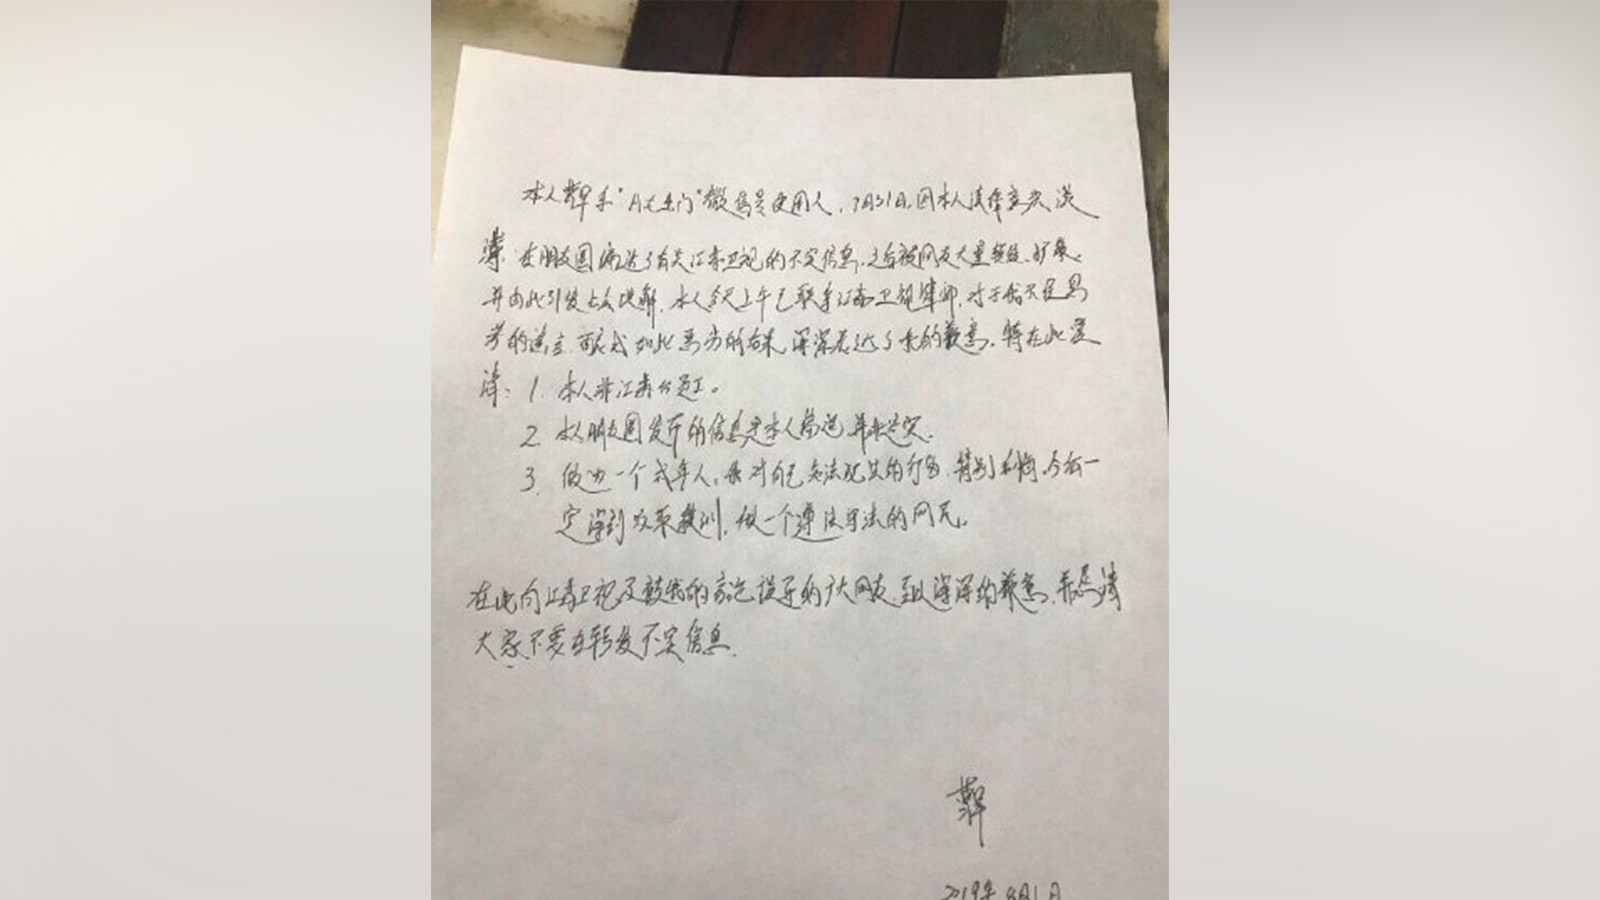 本人 系"月七七门"微信号使用人,7月31日,因本人法律意识淡
薄,在朋友圈编造了有关江苏卫视的不实信息,之后被网友大量转发、扩散,
并由此引发大众误解,本人今天上午已联系江苏卫视律师,对于我不负
的 如此恶劣的后果,深深表达了我的歉意。特在此澄
清:1.本人非江苏台员工。
2.本人朋友圈发布的信息是本人编造,并非
3.做为一个成年人,我对自己 的行为,特别后悔,今后一
定深刻 教训,做一个遵法守法的网民。
在此向江苏卫视及被我的言论误导的广大网友,致以深深的歉意,并恳请
大家不要在转发不实信息.
2019年8月1日